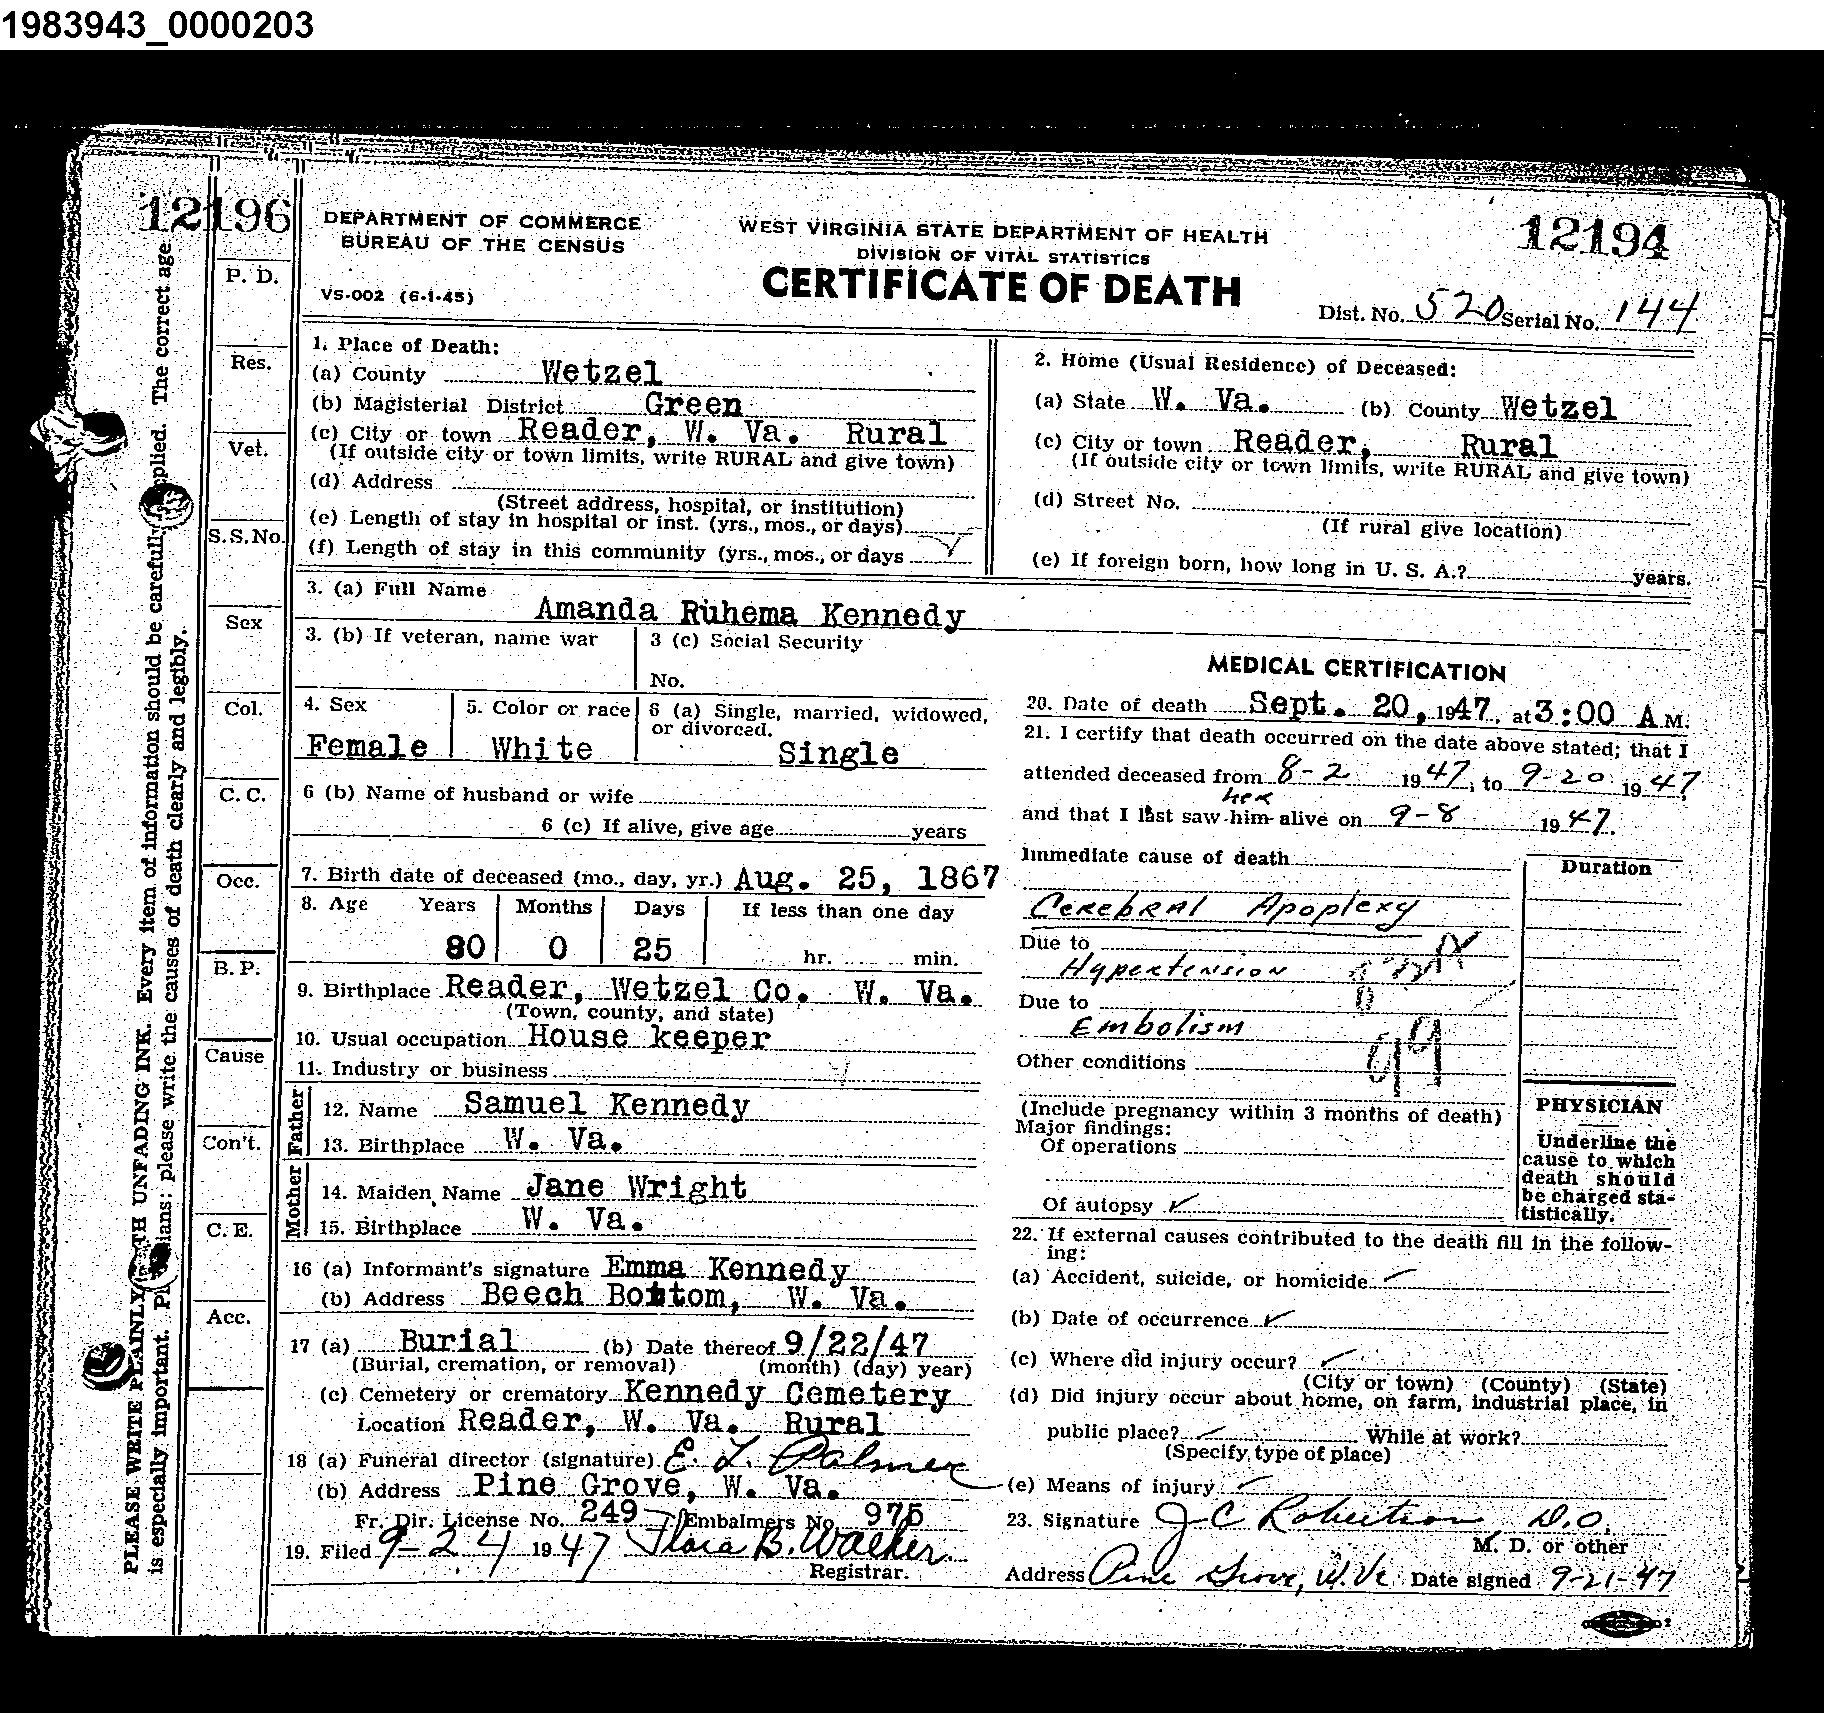 1983943_0000203
12196
12194
DEPARTMENT OF COMMERCE
BUREAU OF THE CENSUS
VS-002 (6-1-45)
WEST VIRGINIA STATE DEPARTMENT OF HEALTH
DIVISION OF VITAL STATISTICS
CERTIFICATE OF DEATH
Dist. No. 520 Serial No. 144
PLEASE WRITE PLAINLY WITH UNFADING INK. Every item of information should be carefully supplied. The correct age
is especially important. Physicians: please write the causes of death clearly and legibly.
P. D.
Res.
Vet.
S.S.No.
Sex
Col.
C. C.
Occ.
B. P.
Cause
Con't.
C. E.
Acc.
1. Place of Death:
(a) County Wetzel
(b) Magisterial District Green
(c) City or town Reader, W. Va. Rural
(If outside city or town limits, write RURAL and give town)
(d) Address
(Street address, hospital, or institution)
(e) Length of stay in hospital or inst. (yrs., mos., or days)
(f) Length of stay in this community (yrs., mos., or days ✓
2. Home (Usual Residence) of Deceased:
(a) State W. Va. (b) County Wetzel
(c) City or town Reader, Rural
(If outside city or town limits, write RURAL and give town)
(d) Street No.
(If rural give location)
(e) If foreign born, how long in U. S. A.? years.
3. (a) Full Name
Amanda Ruhema Kennedy
3. (b) If veteran, name war
3 (c) Social Security
No.
4. Sex
Female
5. Color or race
White
6 (a) Single, married, widowed,
or divorced.
Single
6 (b) Name of husband or wife
6 (c) If alive, give age years
7. Birth date of deceased (mo., day, yr.) Aug. 25, 1867
8. Age Years Months Days If less than one day
80 0 25 hr. min.
9. Birthplace Reader, Wetzel Co. W. Va.
(Town, county, and state)
10. Usual occupation House keeper
11. Industry or business ✓
Father
12. Name Samuel Kennedy
13. Birthplace W. Va.
Mother
14. Maiden Name Jane Wright
15. Birthplace W. Va.
16 (a) Informant's signature Emma Kennedy
(b) Address Beech Bottom, W. Va.
17 (a) Burial (b) Date thereof 9/22/47
(Burial, cremation, or removal) (month) (day) year)
(c) Cemetery or crematory Kennedy Cemetery
Location Reader, W. Va. Rural
18 (a) Funeral director (signature) E. L. Palmer
(b) Address Pine Grove, W. Va.
Fr. Dir. License No. 249 Embalmers No. 975
19. Filed 9-24 1947 Flora B. Walker
Registrar.
MEDICAL CERTIFICATION
20. Date of death Sept. 20, 1947, at 3:00 A M.
21. I certify that death occurred on the date above stated; that I
attended deceased from 8-2 1947, to 9-20 1947,
her
and that I last saw him alive on 9-8 1947.
Immediate cause of death
Duration
Cerebral Apoplexy
Due to
Hypertension
Due to
Embolism
Other conditions
(Include pregnancy within 3 months of death)
Major findings:
Of operations
Of autopsy ✓
PHYSICIAN
Underline the
cause to which
death should
be charged sta-
tistically.
22. If external causes contributed to the death fill in the follow-
ing:
(a) Accident, suicide, or homicide ✓
(b) Date of occurrence ✓
(c) Where did injury occur? ✓
(City or town) (County) (State)
(d) Did injury occur about home, on farm, industrial place, in
public place? ✓ While at work?
(Specify type of place)
(e) Means of injury ✓
23. Signature J C Robertson D.O.
M. D. or other
Address Pine Grove, W. Va Date signed 9-21-47